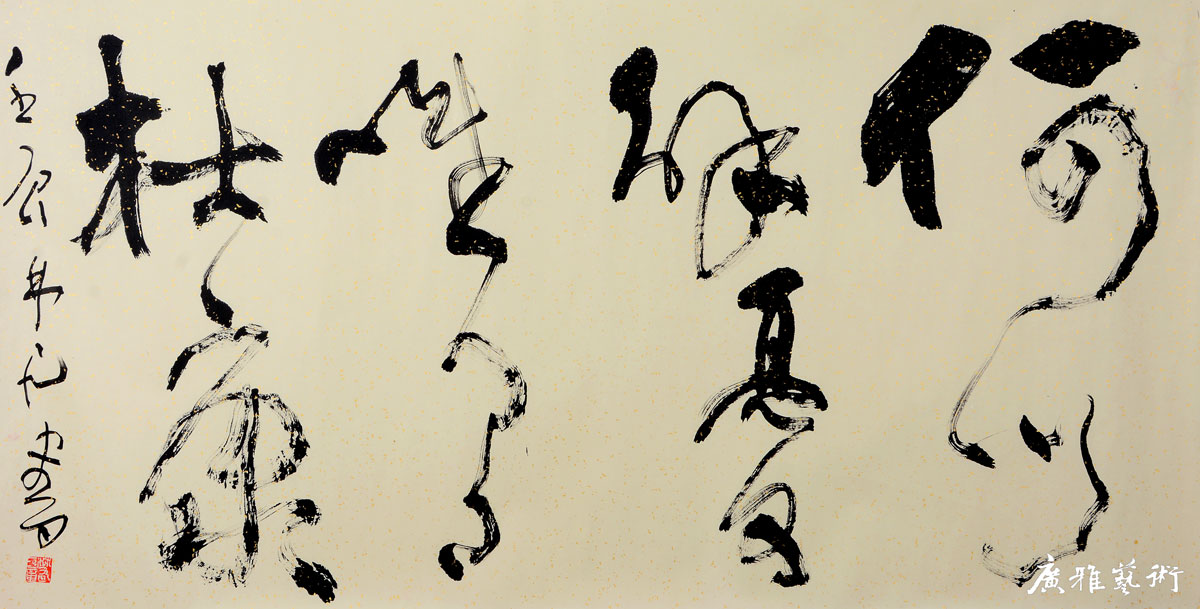 何以
解憂
唯有
杜康
壬辰
廣雅藝術